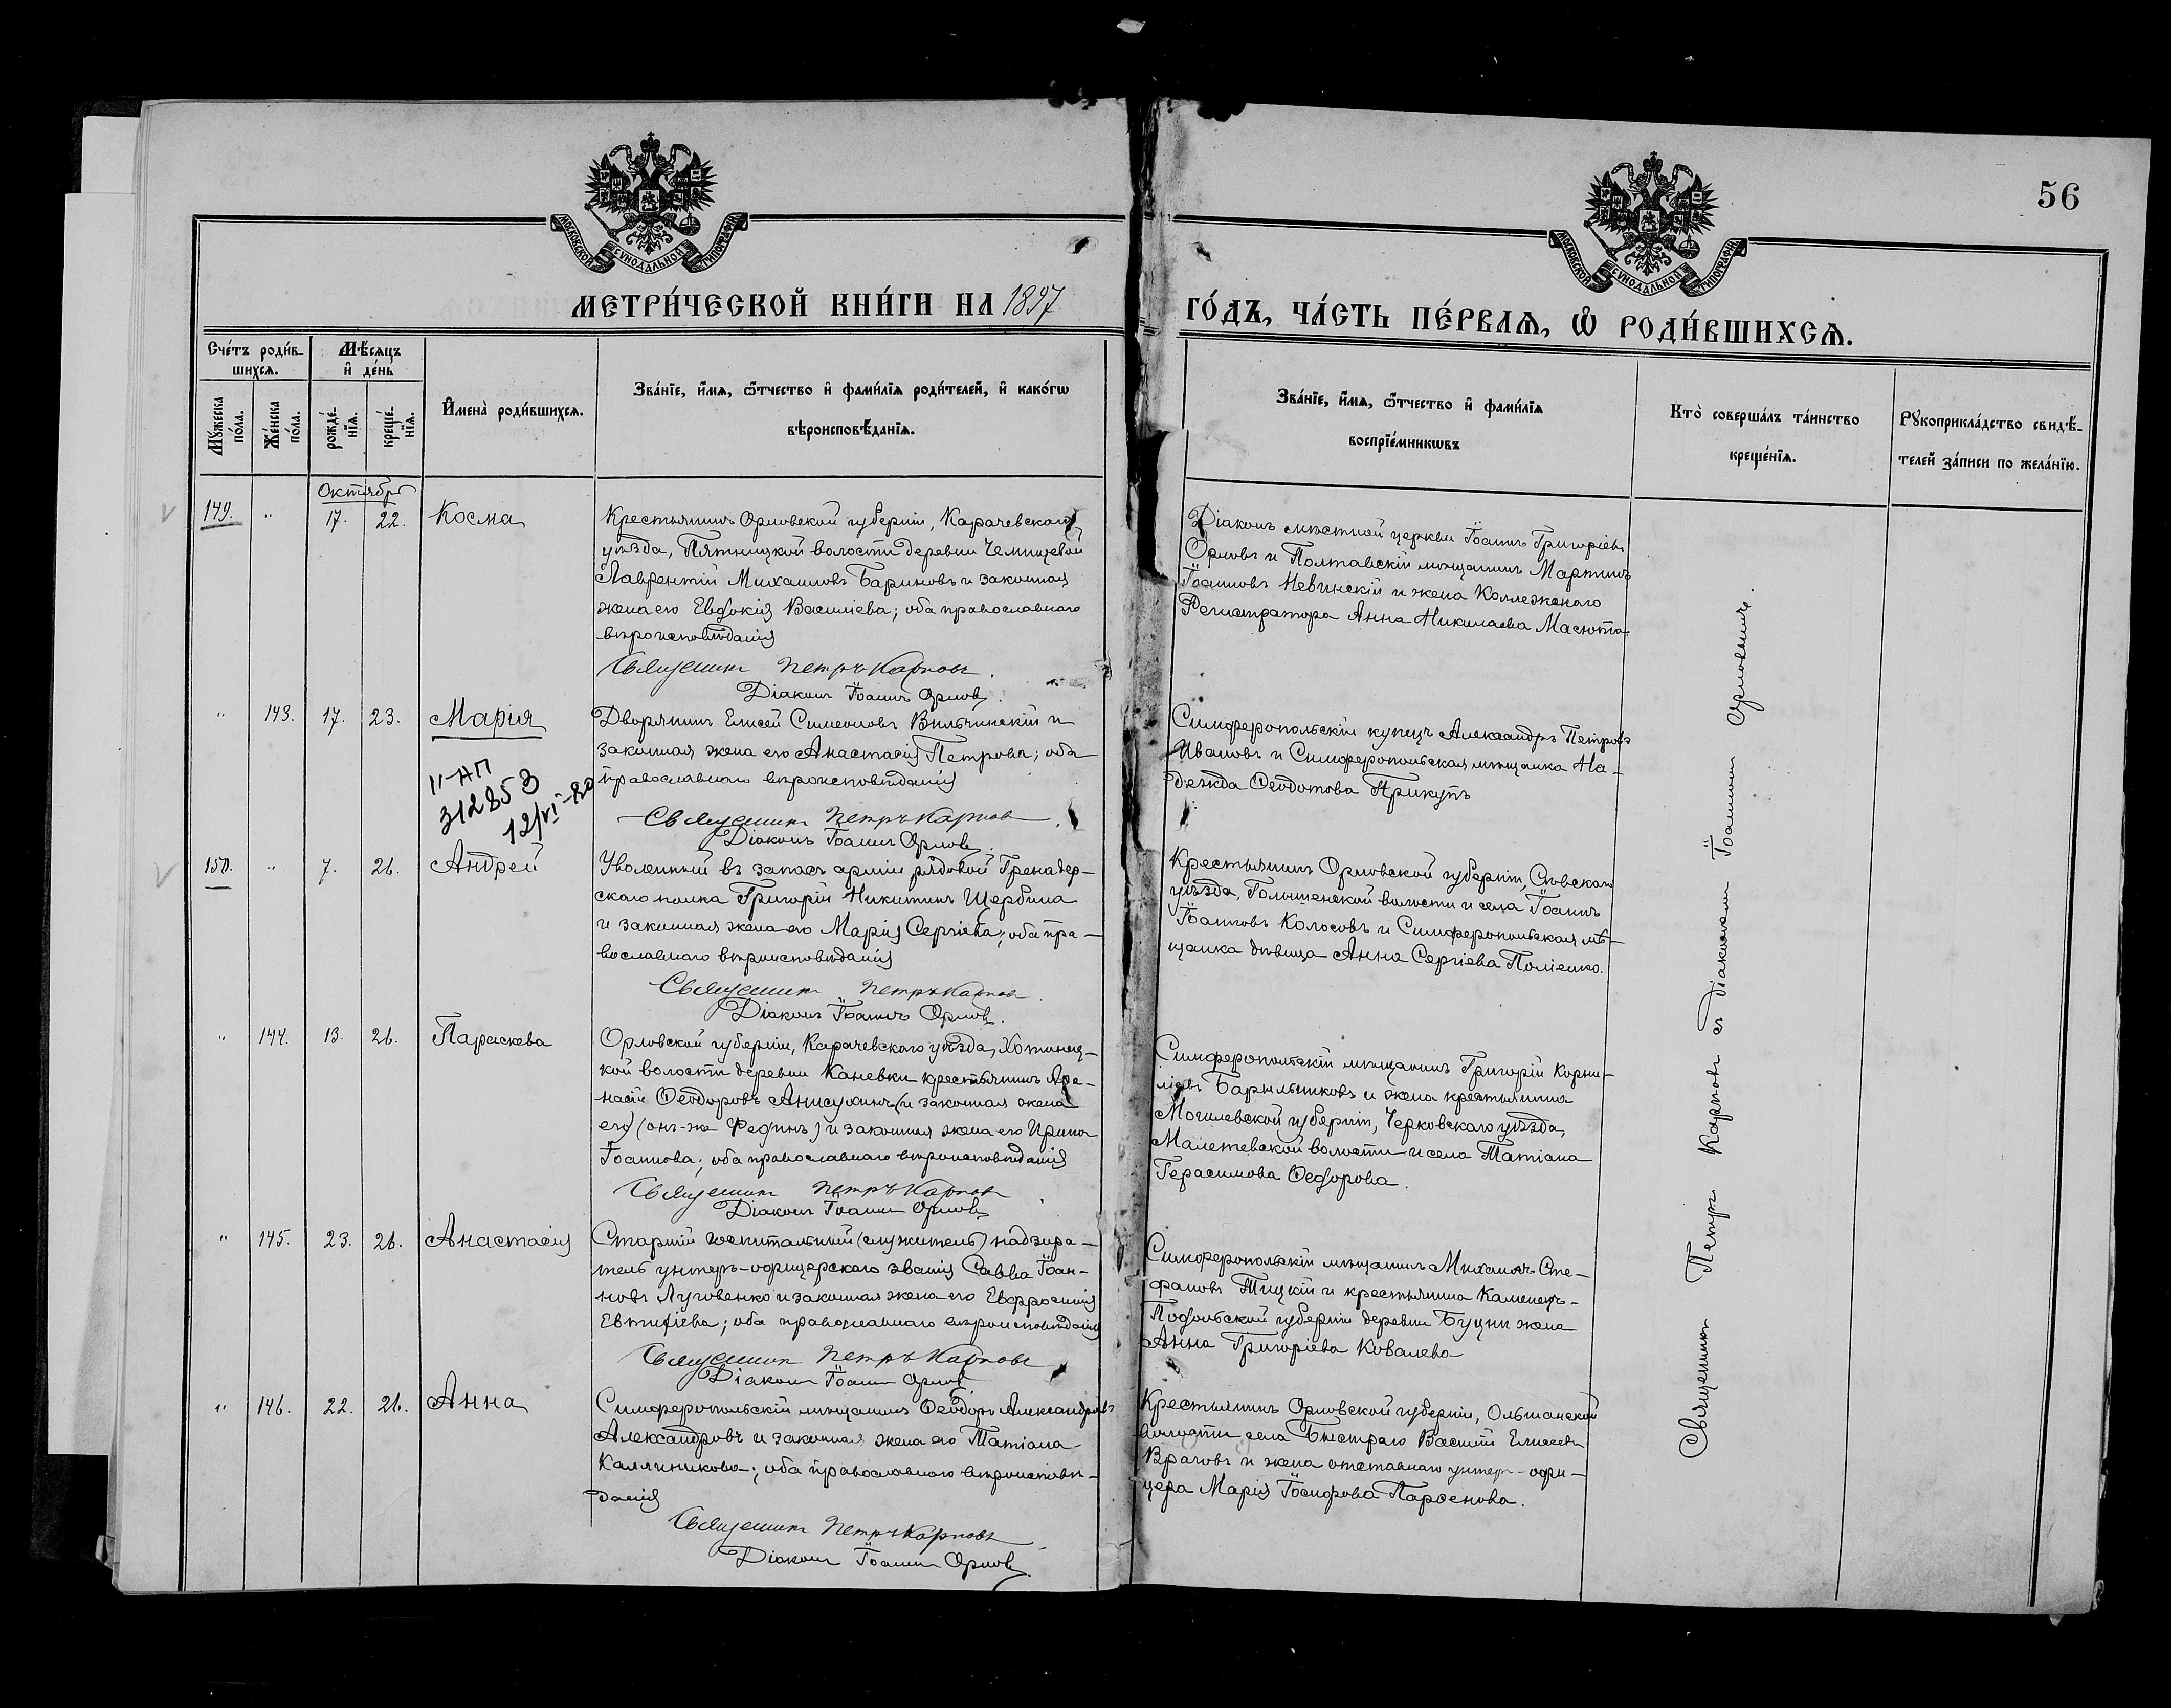 56
МОСКОВСКОЙ СѴНОДАЛЬНОЙ ТИПОГРАФІИ
МОСКОВСКОЙ СѴНОДАЛЬНОЙ ТИПОГРАФІИ
МЕТРИ́ЧЕСКОЙ КНИ́ГИ НА 1897
ГО́ДЪ, ЧА́СТЬ ПЕ́РВАѦ, Ѡ҆ РОДИ́ВШИХСѦ.
Сче́тъ роди́в-
шихсѧ.
Мѣ́сѧцъ
и҆ де́нь
Мꙋ́жеска
по́ла.
Же́нска
по́ла.
рожде́-
нїѧ.
креще́-
нїѧ.
И҆мена̀ роди́вшихсѧ.
Зва́нїе, и҆́мѧ, ѻ҆́тчество и҆ фами́лїѧ роди́телей, и҆ како́гѡ
вѣроисповѣ́данїѧ.
Зва́нїе, и҆́мѧ, ѻ҆́тчество и҆ фами́лїѧ
воспрїе́мникѡвъ
Кто̀ соверша́лъ та́инство
креще́нїѧ.
Рꙋкоприкла́дство свидѣ́-
телей за́писи по жела́нїю.
Октябрь
149. " 17. 22. Косма
Крестьянинъ Орловской губерніи, Карачевскаго
уѣзда, Пятницкой волости деревни
Лаврентій Михаиловъ Бариновъ и законная
жена его Евдокія Василіева; оба православнаго
вѣроисповѣданія
Священникъ Петръ Карповъ.
Діаконъ Іоаннъ Орловъ.
Діаконъ мѣстной церкви Іоаннъ Григоріевъ
Орловъ и Полтавскій мѣщанинъ Мартинъ
Іоанновъ Невинскій и жена Коллежскаго
Регистратора Анна Николаева Масюта.
" 143. 17. 23. Марія
II-АП
312853
12/VI-80
Дворянинъ Елисей Симеоновъ Вильчинскій и
законная жена его Анастасія Петрова; оба
православнаго вѣроисповѣданія
Священникъ Петръ Карповъ.
Діаконъ Іоаннъ Орловъ.
Симферопольскій купецъ Александръ Петровъ
Ивановъ и Симферопольская мѣщанка На-
дежда Ѳеодотова Прикупъ
150. " 7. 26. Андрей
Уволенный въ запасъ арміи рядовой Гренадер-
скаго полка Григорій Никитинъ Щербина
и законная жена его Марія Сергіева; оба пра-
вославнаго вѣроисповѣданія
Священникъ Петръ Карповъ.
Діаконъ Іоаннъ Орловъ.
Крестьянинъ Орловской губерніи, Сѣвскаго
уѣзда, волости и села Іоаннъ
Іоанновъ Колосовъ и Симферопольская мѣ-
щанка дѣвица Анна Сергіева
" 144. 13. 26. Параскева
Орловской губерніи, Карачевскаго уѣзда, Хотинец-
кой волости деревни Каневки крестьянинъ Аѳа-
насій Ѳеодоровъ Анисухинъ (и законная жена
его) (онъ-же Фединъ) и законная жена его Ирина
Іоаннова; оба православнаго вѣроисповѣданія
Священникъ Петръ Карповъ.
Діаконъ Іоаннъ Орловъ
Симферопольскій мѣщанинъ Григорій Корни-
ліевъ Барыльниковъ и жена крестьянина
Могилевской губерніи, Черковскаго уѣзда,
волости и села Татіана
Герасимова Ѳеодорова.
" 145. 23. 26. Анастасія
Старшій госпитальный (служитель) надзира-
тель унтеръ-офицерскаго званія Савва Іоан-
новъ Луговенко и законная жена его Евфросинія
Евтихіева; оба православнаго вѣроисповѣданія
Священникъ Петръ Карповъ
Діаконъ Іоаннъ Орловъ
Симферопольскій мѣщанинъ Михаилъ Сте-
фановъ Тицкій и крестьянина Каменецъ-
Подольской губерніи деревни Буцни жена
Анна Григоріева Ковалева
" 146. 22. 26. Анна
Симферопольскій мѣщанинъ Ѳеодоръ Александровъ
Александровъ и законная жена его Татіана
Каллиникова; оба православнаго вѣроисповѣ-
данія
Священникъ Петръ Карповъ
Діаконъ Іоаннъ Орловъ.
Крестьянинъ Орловской губерніи, Ольшанской
волости села Быстраго Василій Елисеевъ
Враговъ и жена отставнаго унтеръ-офи-
цера Марія Іосифова Парѳенова.
Священникъ Петръ Карповъ съ діакономъ Іоанномъ Орловымъ.